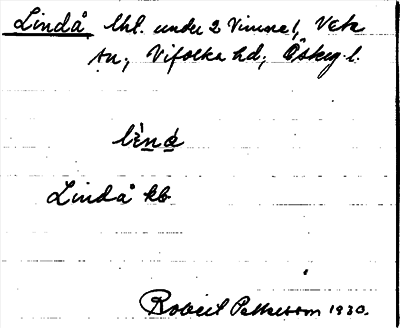 Lindå lht. under 2 Vimme!, Veta
sn, Vifolka hd, Östерg. l.
lìná
Lindå kb
Robert Pettersson 1930.